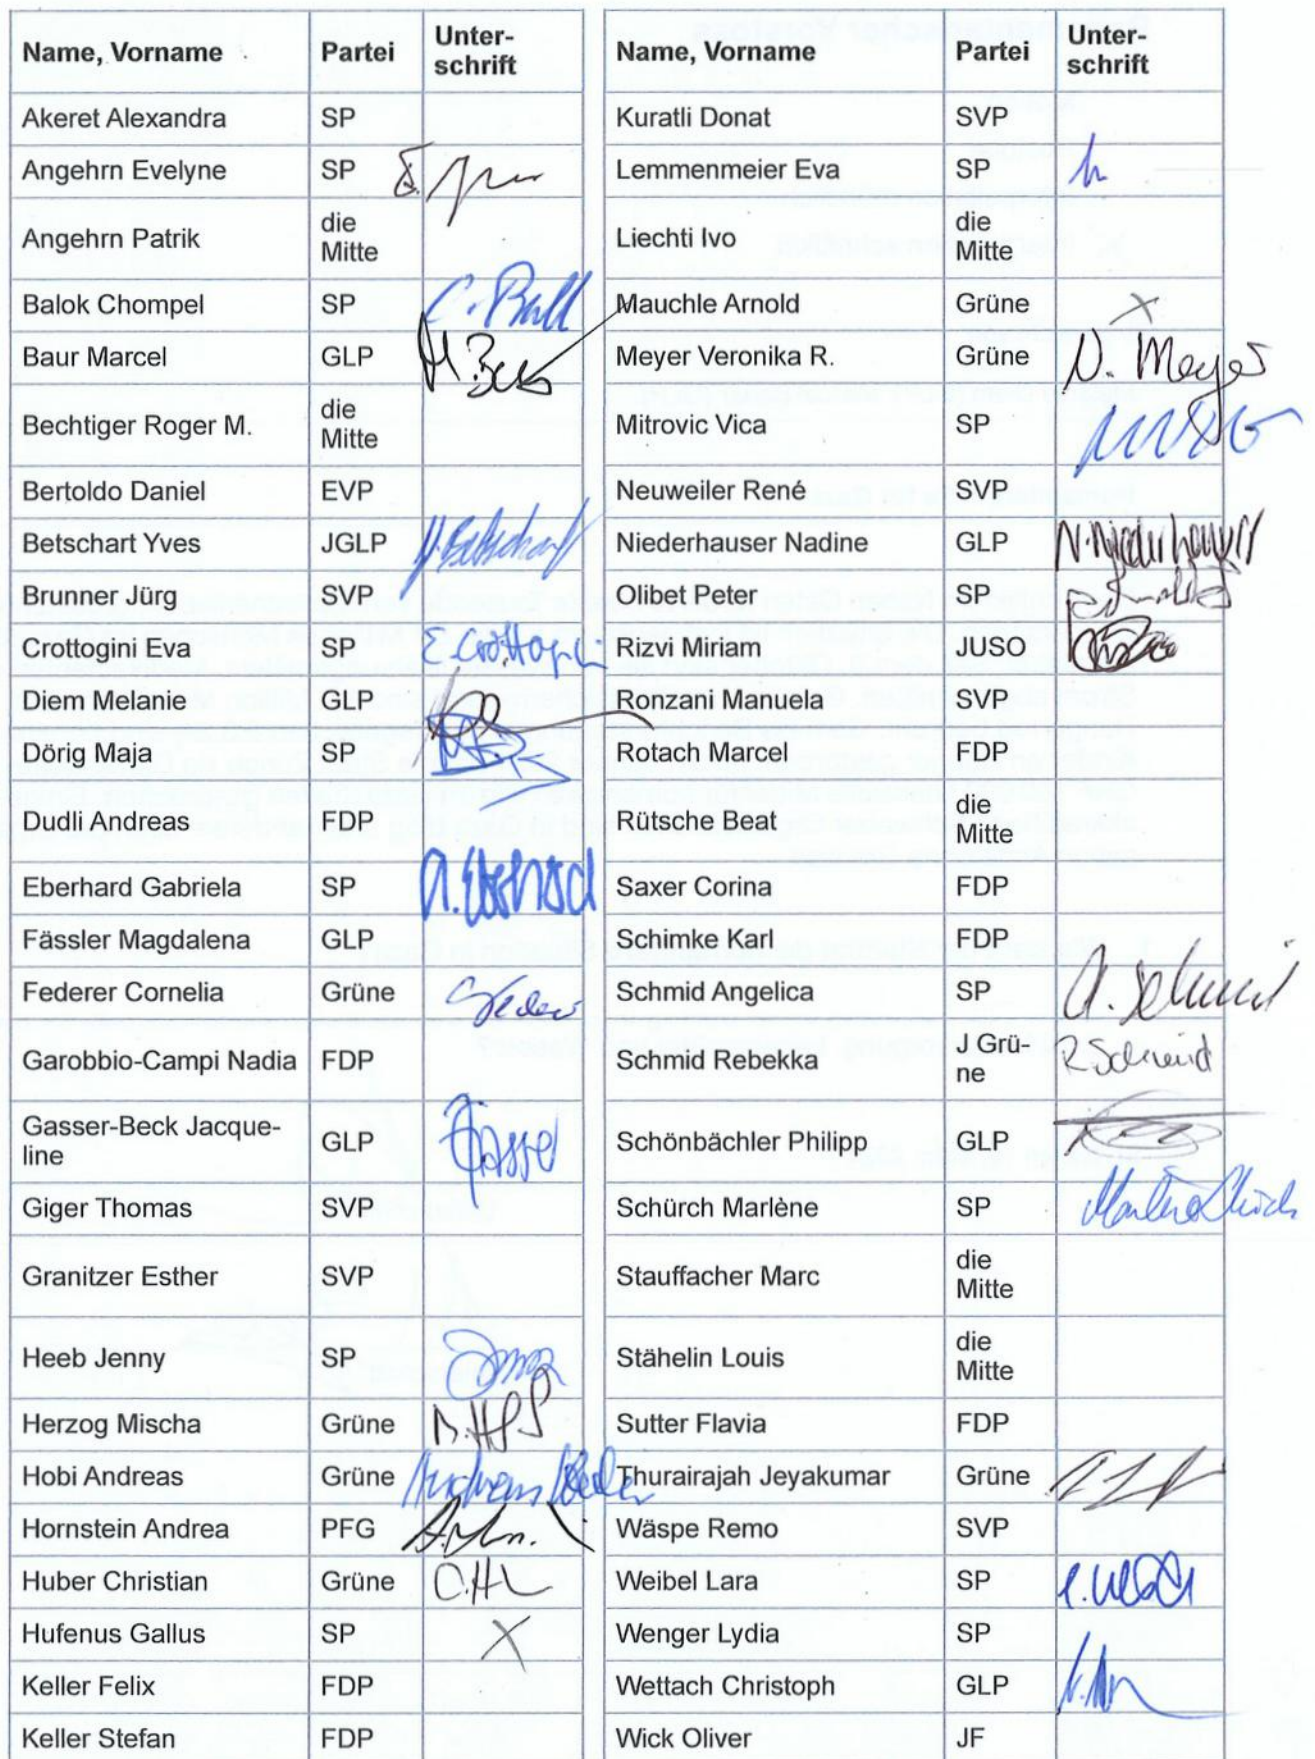 Name, Vorname Partei Unter-
schrift
Akeret Alexandra SP
Angehrn Evelyne SP
Angehrn Patrik die
Mitte
Balok Chompel SP
Baur Marcel GLP
Bechtiger Roger M. die
Mitte
Bertoldo Daniel EVP
Betschart Yves JGLP Y. Betschart
Brunner Jürg SVP
Crottogini Eva SP E. Crottogini
Diem Melanie GLP
Dörig Maja SP
Dudli Andreas FDP
Eberhard Gabriela SP
Fässler Magdalena GLP
Federer Cornelia Grüne
Garobbio-Campi Nadia FDP
Gasser-Beck Jacque-
line GLP
Giger Thomas SVP
Granitzer Esther SVP
Heeb Jenny SP
Herzog Mischa Grüne
Hobi Andreas Grüne
Hornstein Andrea PFG
Huber Christian Grüne
Hufenus Gallus SP X
Keller Felix FDP
Keller Stefan FDP
Name, Vorname Partei Unter-
schrift
Kuratli Donat SVP
Lemmenmeier Eva SP
Liechti Ivo die
Mitte
Mauchle Arnold Grüne X
Meyer Veronika R. Grüne V. Meyer
Mitrovic Vica SP
Neuweiler René SVP
Niederhauser Nadine GLP N. Niederhauser
Olibet Peter SP
Rizvi Miriam JUSO
Ronzani Manuela SVP
Rotach Marcel FDP
Rütsche Beat die
Mitte
Saxer Corina FDP
Schimke Karl FDP
Schmid Angelica SP A. Schmid
Schmid Rebekka J Grü-
ne R. Schmid
Schönbächler Philipp GLP
Schürch Marlène SP
Stauffacher Marc die
Mitte
Stähelin Louis die
Mitte
Sutter Flavia FDP
Thurairajah Jeyakumar Grüne
Wäspe Remo SVP
Weibel Lara SP
Wenger Lydia SP
Wettach Christoph GLP
Wick Oliver JF